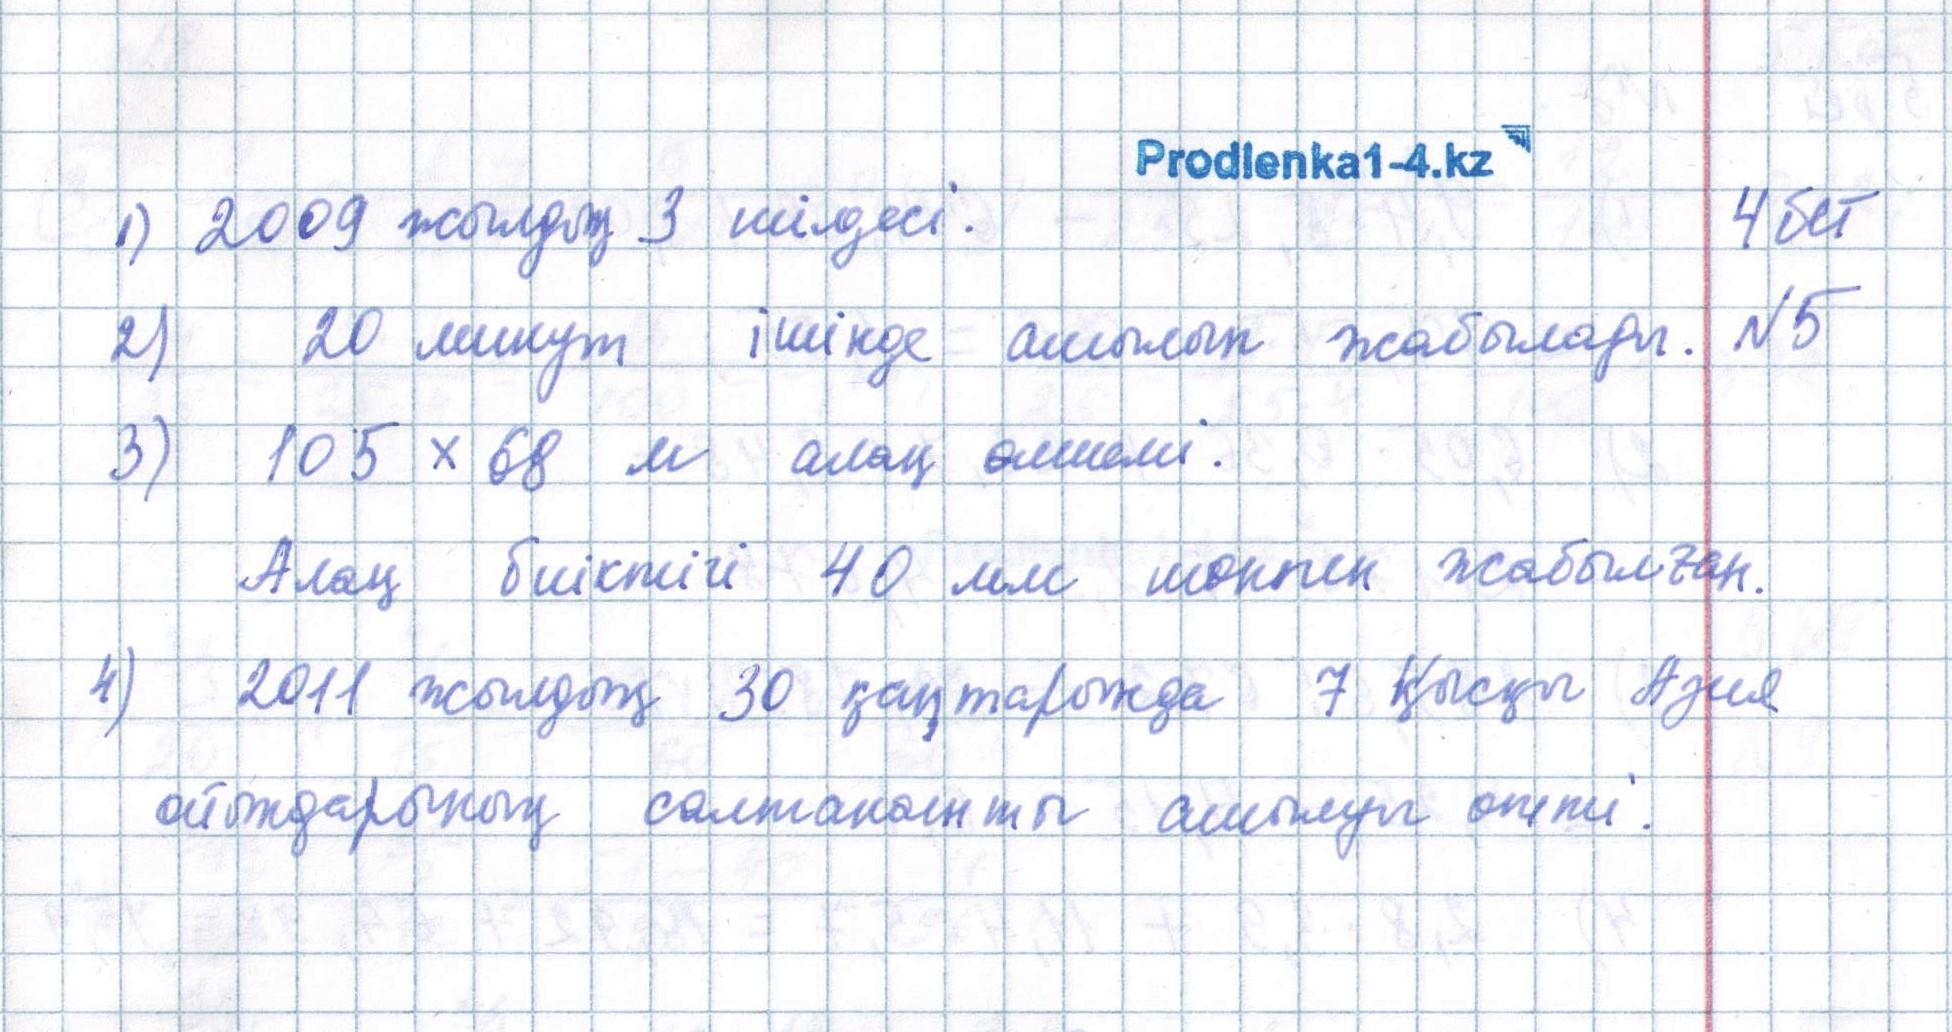 Prodlenka1-4.kz
1) 2009 жылдың 3 шілдесі. 4 бет
2) 20 минут ішінде ашылып жабылады. №5
3) 105 × 68 м алаң өлшемі.
Алаң биіктігі 40 мм шөппен жабылған.
4) 2011 жылдың 30 қаңтарында 7 Қысқы Азия
ойындарының салтанатты ашылуы өтті.